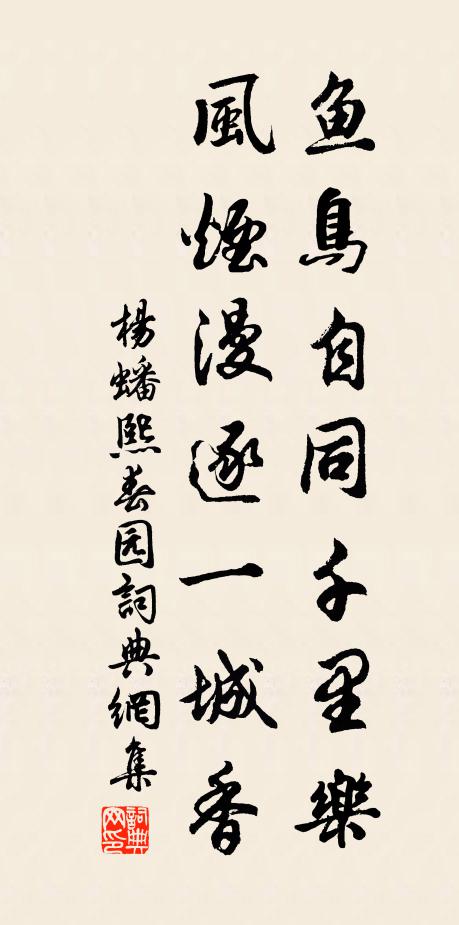 鱼鳥自同千里樂
風煙漫逐一城香
楊蟠熙春园詞典網集
詞典网印